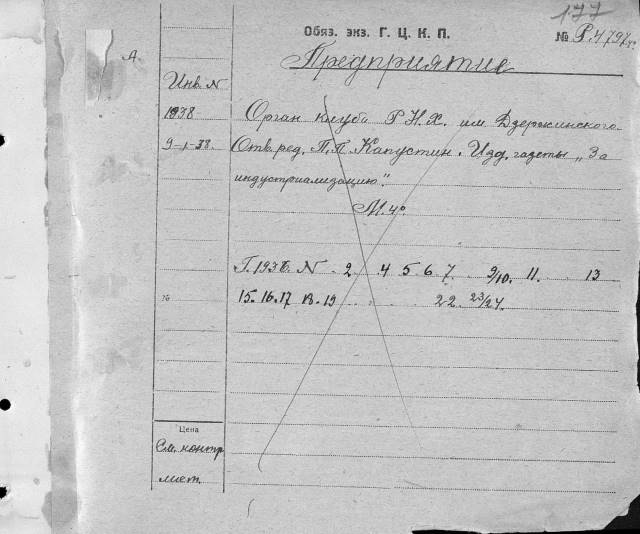 177
Обяз. экз. Г. Ц. К. П.
№ Р.4797
Предприятие
А.
Инв. N
1938
9-1-38.
Орган клуба Р.Н.Х. им Дзержинского.
Отв. ред. П.П. Капустин. Изд. газеты „За
индустриализацию".
М. 4º
Г. 193 N 2 4 5 6 7 9/10. 11. 13
15. 16. 17 18. 19 22. 23/24.
Цена
См. контр
лист.